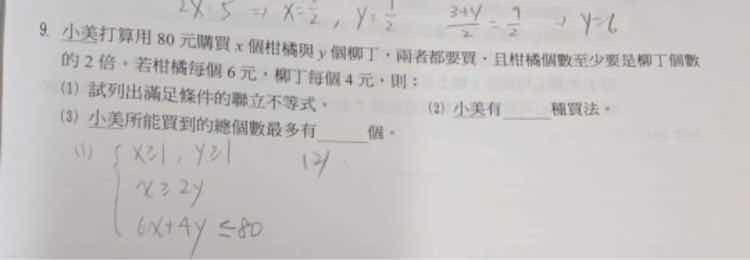 2x=5 ⇒ x=5/2 , y=1/2 (3+y)/2=9/2 → y=6
9. 小美打算用 80 元購買 x 個柑橘與 y 個柳丁,兩者都要買,且柑橘個數至少要是柳丁個數
的 2 倍。若柑橘每個 6 元,柳丁每個 4 元,則:
(1) 試列出滿足條件的聯立不等式。 (2) 小美有______種買法。
(3) 小美所能買到的總個數最多有______個。
(1) { x≥1 , y≥1 (2)
x≥2y
6x+4y≤80